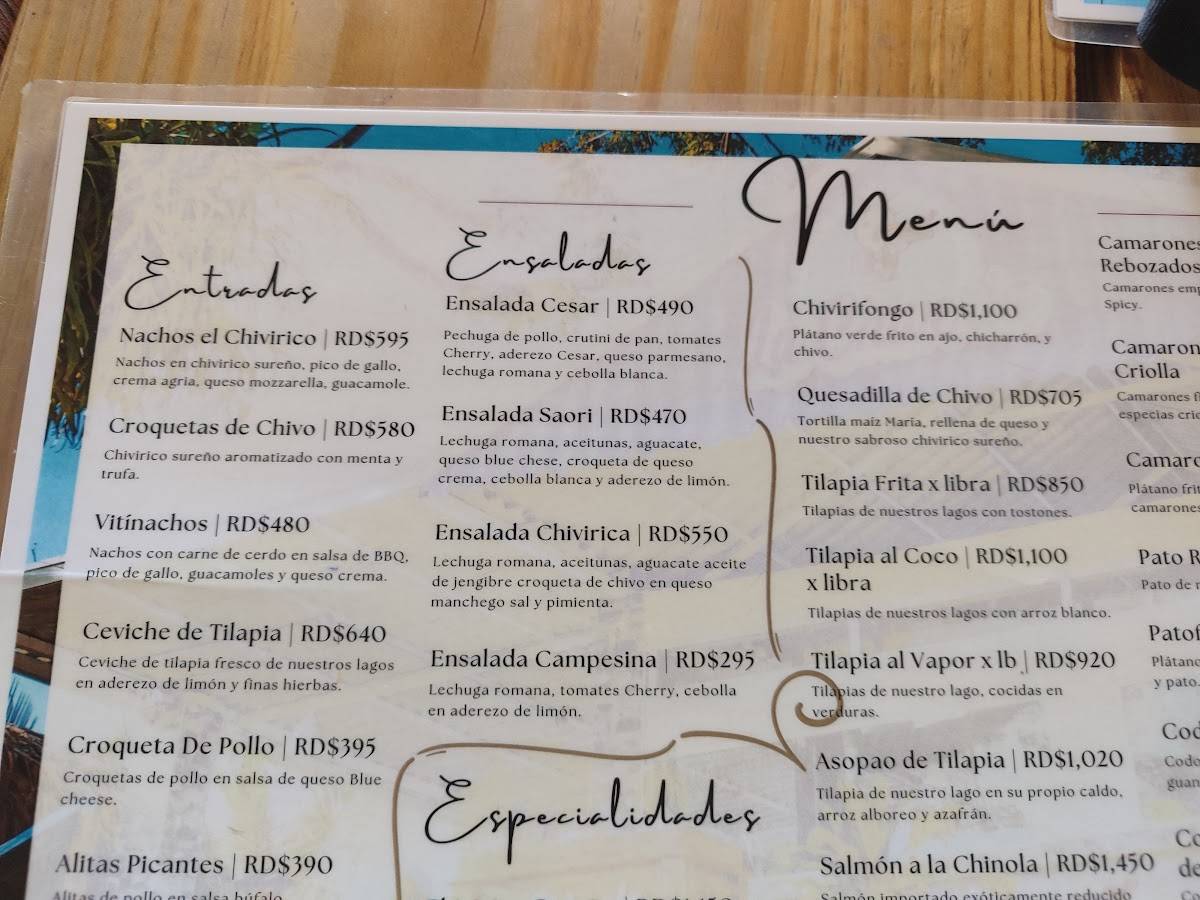 Menú
Entradas
Nachos el Chivirico | RD$595
Nachos en chivirico sureño, pico de gallo,
crema agria, queso mozzarella, guacamole.
Croquetas de Chivo | RD$580
Chivirico sureño aromatizado con menta y
trufa.
Vitínachos | RD$480
Nachos con carne de cerdo en salsa de BBQ,
pico de gallo, guacamoles y queso crema.
Ceviche de Tilapia | RD$640
Ceviche de tilapia fresco de nuestros lagos
en aderezo de limón y finas hierbas.
Croqueta De Pollo | RD$395
Croquetas de pollo en salsa de queso Blue
cheese.
Alitas Picantes | RD$390
Alitas de pollo en salsa búfalo
Ensaladas
Ensalada Cesar | RD$490
Pechuga de pollo, crutini de pan, tomates
Cherry, aderezo Cesar, queso parmesano,
lechuga romana y cebolla blanca.
Ensalada Saori | RD$470
Lechuga romana, aceitunas, aguacate,
queso blue chese, croqueta de queso
crema, cebolla blanca y aderezo de limón.
Ensalada Chivirica | RD$550
Lechuga romana, aceitunas, aguacate aceite
de jengibre croqueta de chivo en queso
manchego sal y pimienta.
Ensalada Campesina | RD$295
Lechuga romana, tomates Cherry, cebolla
en aderezo de limón.
Especialidades
Chivirifongo | RD$1,100
Plátano verde frito en ajo, chicharrón, y
chivo.
Quesadilla de Chivo | RD$705
Tortilla maíz Maria, rellena de queso y
nuestro sabroso chivirico sureño.
Tilapia Frita x libra | RD$850
Tilapias de nuestros lagos con tostones.
Tilapia al Coco | RD$1,100
x libra
Tilapias de nuestros lagos con arroz blanco.
Tilapia al Vapor x lb | RD$920
Tilapias de nuestro lago, cocidas en
verduras.
Asopao de Tilapia | RD$1,020
Tilapia de nuestro lago en su propio caldo,
arroz alboreo y azafrán.
Salmón a la Chinola | RD$1,450
Salmón importado exóticamente reducido
Camarones
Rebozados
Camarones
Spicy.
Criolla
Camarones
especias
Plátano
camarones
Pato
Pato de
y pato.
Codo